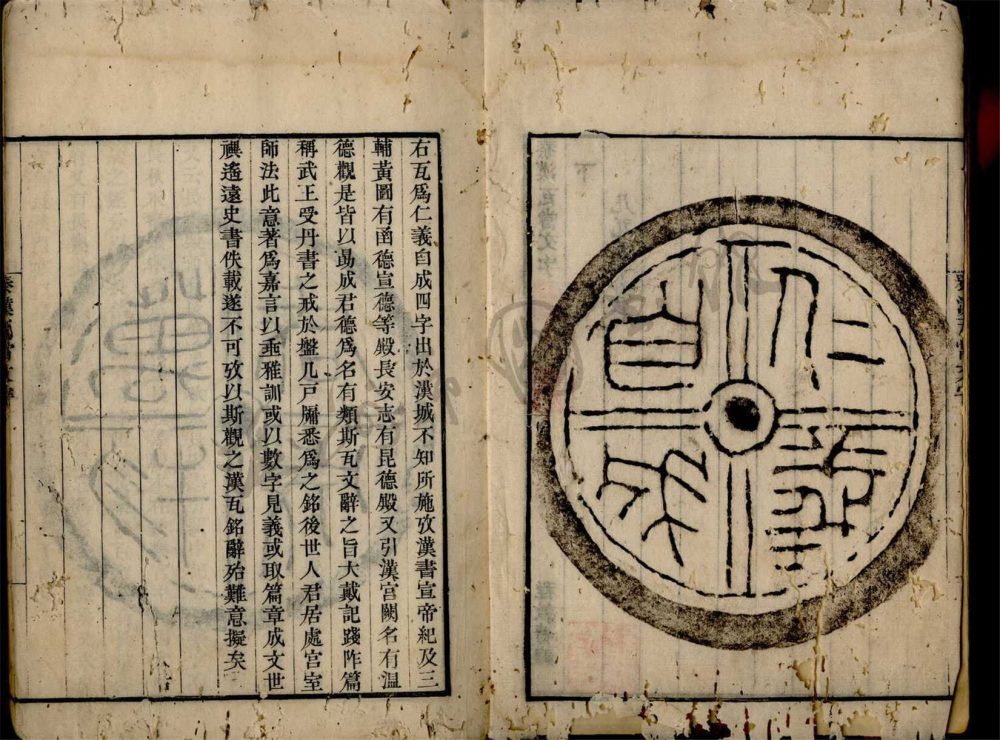 仁義自成
右瓦爲仁義自成四字出於漢城不知所施攷漢書宣帝紀及三
輔黃圖有函德宣德等殿長安志有昆德殿又引漢宮闕名有溫
德觀是皆以勗成君德爲名有類斯瓦文辭之旨大戴記踐阼篇
稱武王受丹書之戒於盤几戸牖悉爲之銘後世人君居處宮室
師法此意著爲嘉言以垂雅訓或以數字見義或取篇章成文世
禩遙遠史書佚載遂不可攷以斯觀之漢瓦銘辭殆難意擬矣